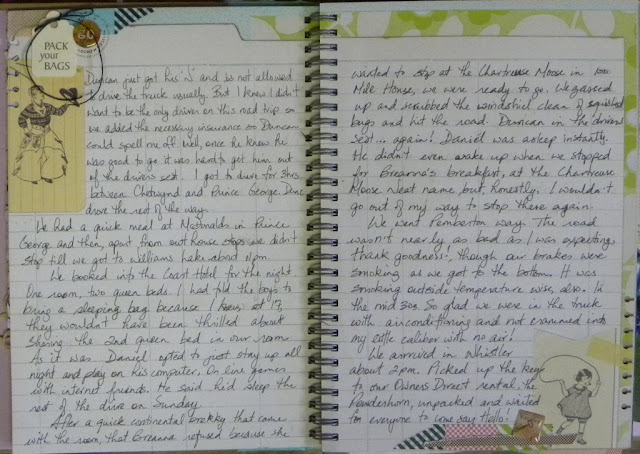 PACK
your
BAGS
Duncan just got his "N" and is not allowed
to drive the truck usually. But I knew I didn't
want to be the only driver on this road trip so
we added the necessary insurance so Duncan
could spell me off. Well, once he knew he
was good to go it was hard to get him out
of the drivers seat. I got to drive for 3hrs
between Chetwynd and Prince George. Dunc
drove the rest of the way.
We had a quick meal at McDonalds in Prince
George and then, apart from out house stops we didn't
stop till we got to Williams Lake about 11pm.
We booked into the Coast Hotel for the night.
One room, two queen beds. I had told the boys to
bring a sleeping bag because I knew, at 17,
they wouldn't have been thrilled about
sharing the 2nd queen bed in our room.
As it was Daniel opted to just stay up all
night and play on his computer. On line games
with internet friends. He said he'd sleep the
rest of the drive on Sunday.
After a quick continental brekky that came
with the room, that Breanna refused because she
wanted to stop at the Chartreuse Moose in 100
Mile House, we were ready to go. We gassed
up and scrubbed the windshield clean of squished
bugs and hit the road. Duncan in the drivers
seat... again! Daniel was asleep instantly.
He didn't even wake up when we stopped
for Breanna's breakfast, at the Chartreuse
Moose. Neat name but, honestly, I wouldn't
go out of my way to stop there again.
We went Pemberton way. The road
wasn't nearly as bad as I was expecting,
thank goodness!, though our brakes were
smoking as we got to the bottom. It was
smoking outside temperature wise, also. In
the mid 30s. So glad we were in the truck
with airconditioning and not crammed into
my little caliber with no air!
We airrived in Whistler
about 2pm. Picked up the keys
to our Owners Direct rental, the
Powderhorn, unpacked and waited
for everyone to come say Hello!